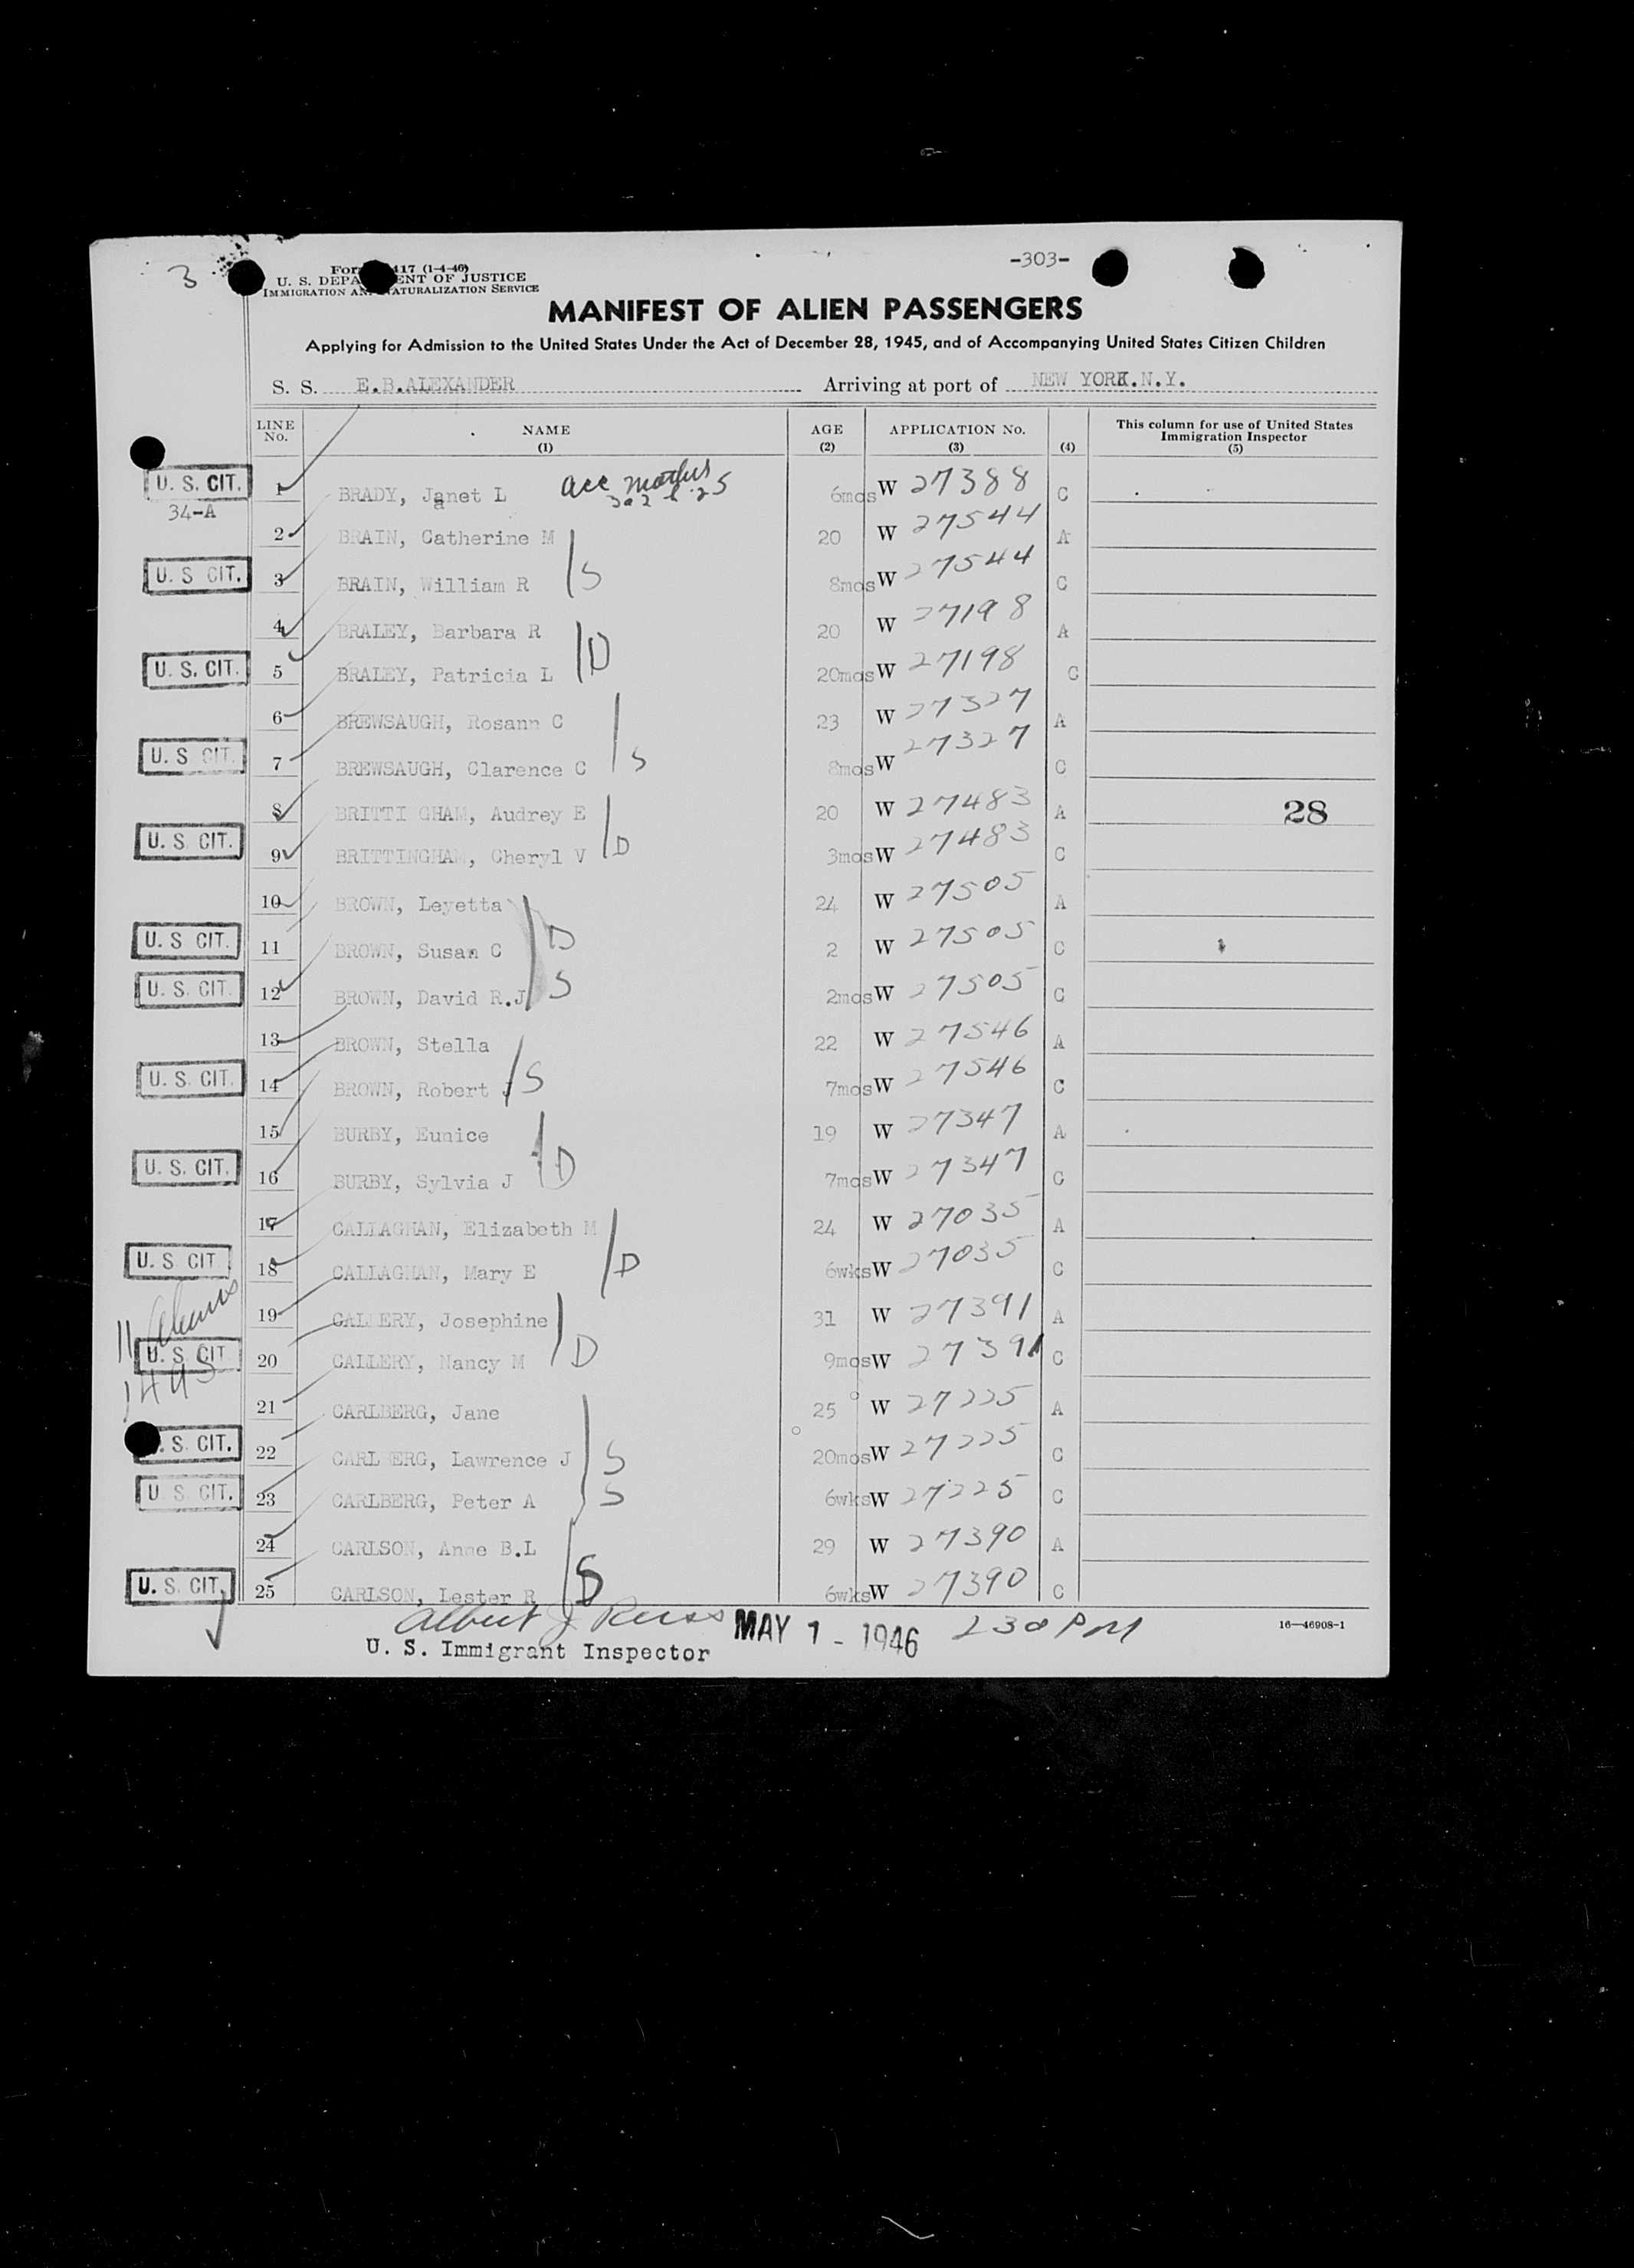 3
-303-
For 417 (1-4-46)
U. S. DEPA ENT OF JUSTICE
IMMIGRATION AN NATURALIZATION SERVICE
MANIFEST OF ALIEN PASSENGERS
Applying for Admission to the United States Under the Act of December 28, 1945, and of Accompanying United States Citizen Children
S. S. E.B.ALEXANDER Arriving at port of NEW YORK.N.Y.
LINE No. NAME (1) AGE (2) APPLICATION No. (3) (4) This column for use of United States Immigration Inspector (5)
U. S. CIT. 1 BRADY, Janet L acc mother 302 l 25 6mos W 27388 C
34-A
2 BRAIN, Catherine M 20 W 27544 A
U. S CIT. 3 BRAIN, William R S 8mos W 27544 C
4 BRALEY, Barbara R 20 W 27198 A
U. S. CIT. 5 BRALEY, Patricia L D 20mos W 27198 C
6 BREWSAUGH, Rosann C 23 W 27327 A
U. S CIT. 7 BREWSAUGH, Clarence C S 8mos W 27327 C
8 BRITTI GHAM, Audrey E 20 W 27483 A 28
U. S. CIT. 9 BRITTINGHAM, Cheryl V D 3mos W 27483 C
10 BROWN, Leyetta 24 W 27505 A
U. S CIT. 11 BROWN, Susan C D 2 W 27505 C
U. S. CIT. 12 BROWN, David R.J S 2mos W 27505 C
13 BROWN, Stella 22 W 27546 A
U. S. CIT. 14 BROWN, Robert J S 7mos W 27546 C
15 BURBY, Eunice 19 W 27347 A
U. S. CIT. 16 BURBY, Sylvia J D 7mos W 27347 C
17 CALLAGHAN, Elizabeth M 24 W 27035 A
U. S. CIT 18 CALLAGHAN, Mary E D 6wks W 27035 C
11 Aliens
19 CALLERY, Josephine 31 W 27391 A
U. S. CIT 20 CALLERY, Nancy M D 9mos W 27391 C
21 CARLBERG, Jane 25 W 27225 A
. S. CIT. 22 CARL ERG, Lawrence J S 20mos W 27225 C
U. S. CIT. 23 CARLBERG, Peter A S 6wks W 27225 C
24 CARLSON, Anne B.L 29 W 27390 A
U. S. CIT. 25 CARLSON, Lester R S 6wks W 27390 C
Albert J MAY 1 - 1946 230 PM 16—46908-1
U. S. Immigrant Inspector